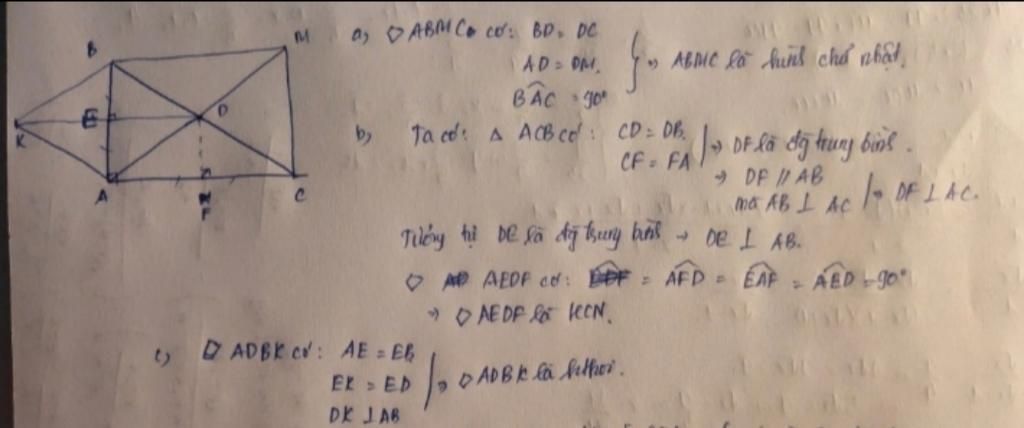 B
M
a) ◇ ABMC có: BD = DC
AD = DM.
BAC = 90°
} → ABMC là hình chữ nhật.
D
E
K
A
N
F
C
b) Ta có: Δ ACB có: CD = DB.
CF = FA
→ DF là đg trung bình.
→ DF // AB
mà AB ⊥ AC
→ DF ⊥ AC.
Tương tự DE là đg trung bình → DE ⊥ AB.
◇ AEDF có: = AFD = EAF = AED = 90°
→ ◇ AEDF là HCN.
c) ◇ ADBK có: AE = EB
EK = ED
DK ⊥ AB
→ ◇ ADBK là hthoi.